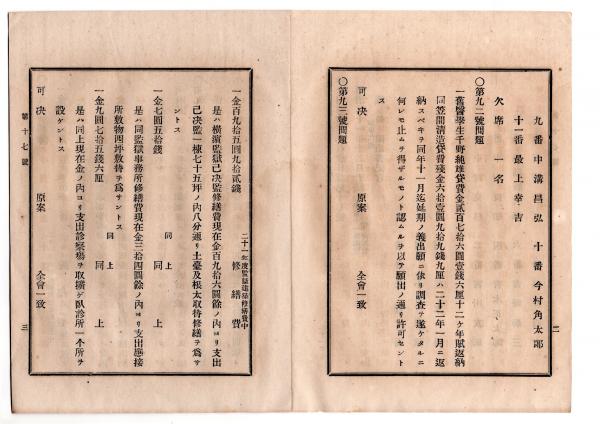 九番中溝昌弘　十番今村角太郎
十一番最上幸吉
欠席　一名
〇第九二號問題
一舊醫學生千野純雄貸費金貳百七拾六圓壹錢六厘十二ケ年賦返納
同笠間清造貸費殘金六拾壹圓九拾九錢九厘ハ二十二年一月ニ返
納スベキヲ同年十一月迄延期ノ義出願ニ依リ調査ヲ遂ケタルニ
何レモ止ムヲ得ザルモノト認ムルヲ以テ願出ノ通リ許可セント
ス
可决　原案　全會一致
〇第九三號問題
二
一金百九拾五圓九拾貳錢　二十一年度監獄建築修繕費中　修繕費
是ハ横濱監獄已决監修繕費現在金百九拾六圓餘ノ內ヨリ支出
已决監一棟七十五坪ノ內八分通リ土臺及根太取待修繕ヲ爲サ
ントス
一金七圓五拾錢　同上　同上
是ハ同監獄事務所修繕費現在金三拾四圓餘ノ內ヨリ支出應接
所敷物四坪敷待ヲ爲サントス
一金九圓七拾五錢六厘　同上　同上
是ハ同上現在金ノ內ヨリ支出診察塲ヲ取擴ゲ臥診所一个所ヲ
設ケントス
可决　原案　全會一致
第十七號
三